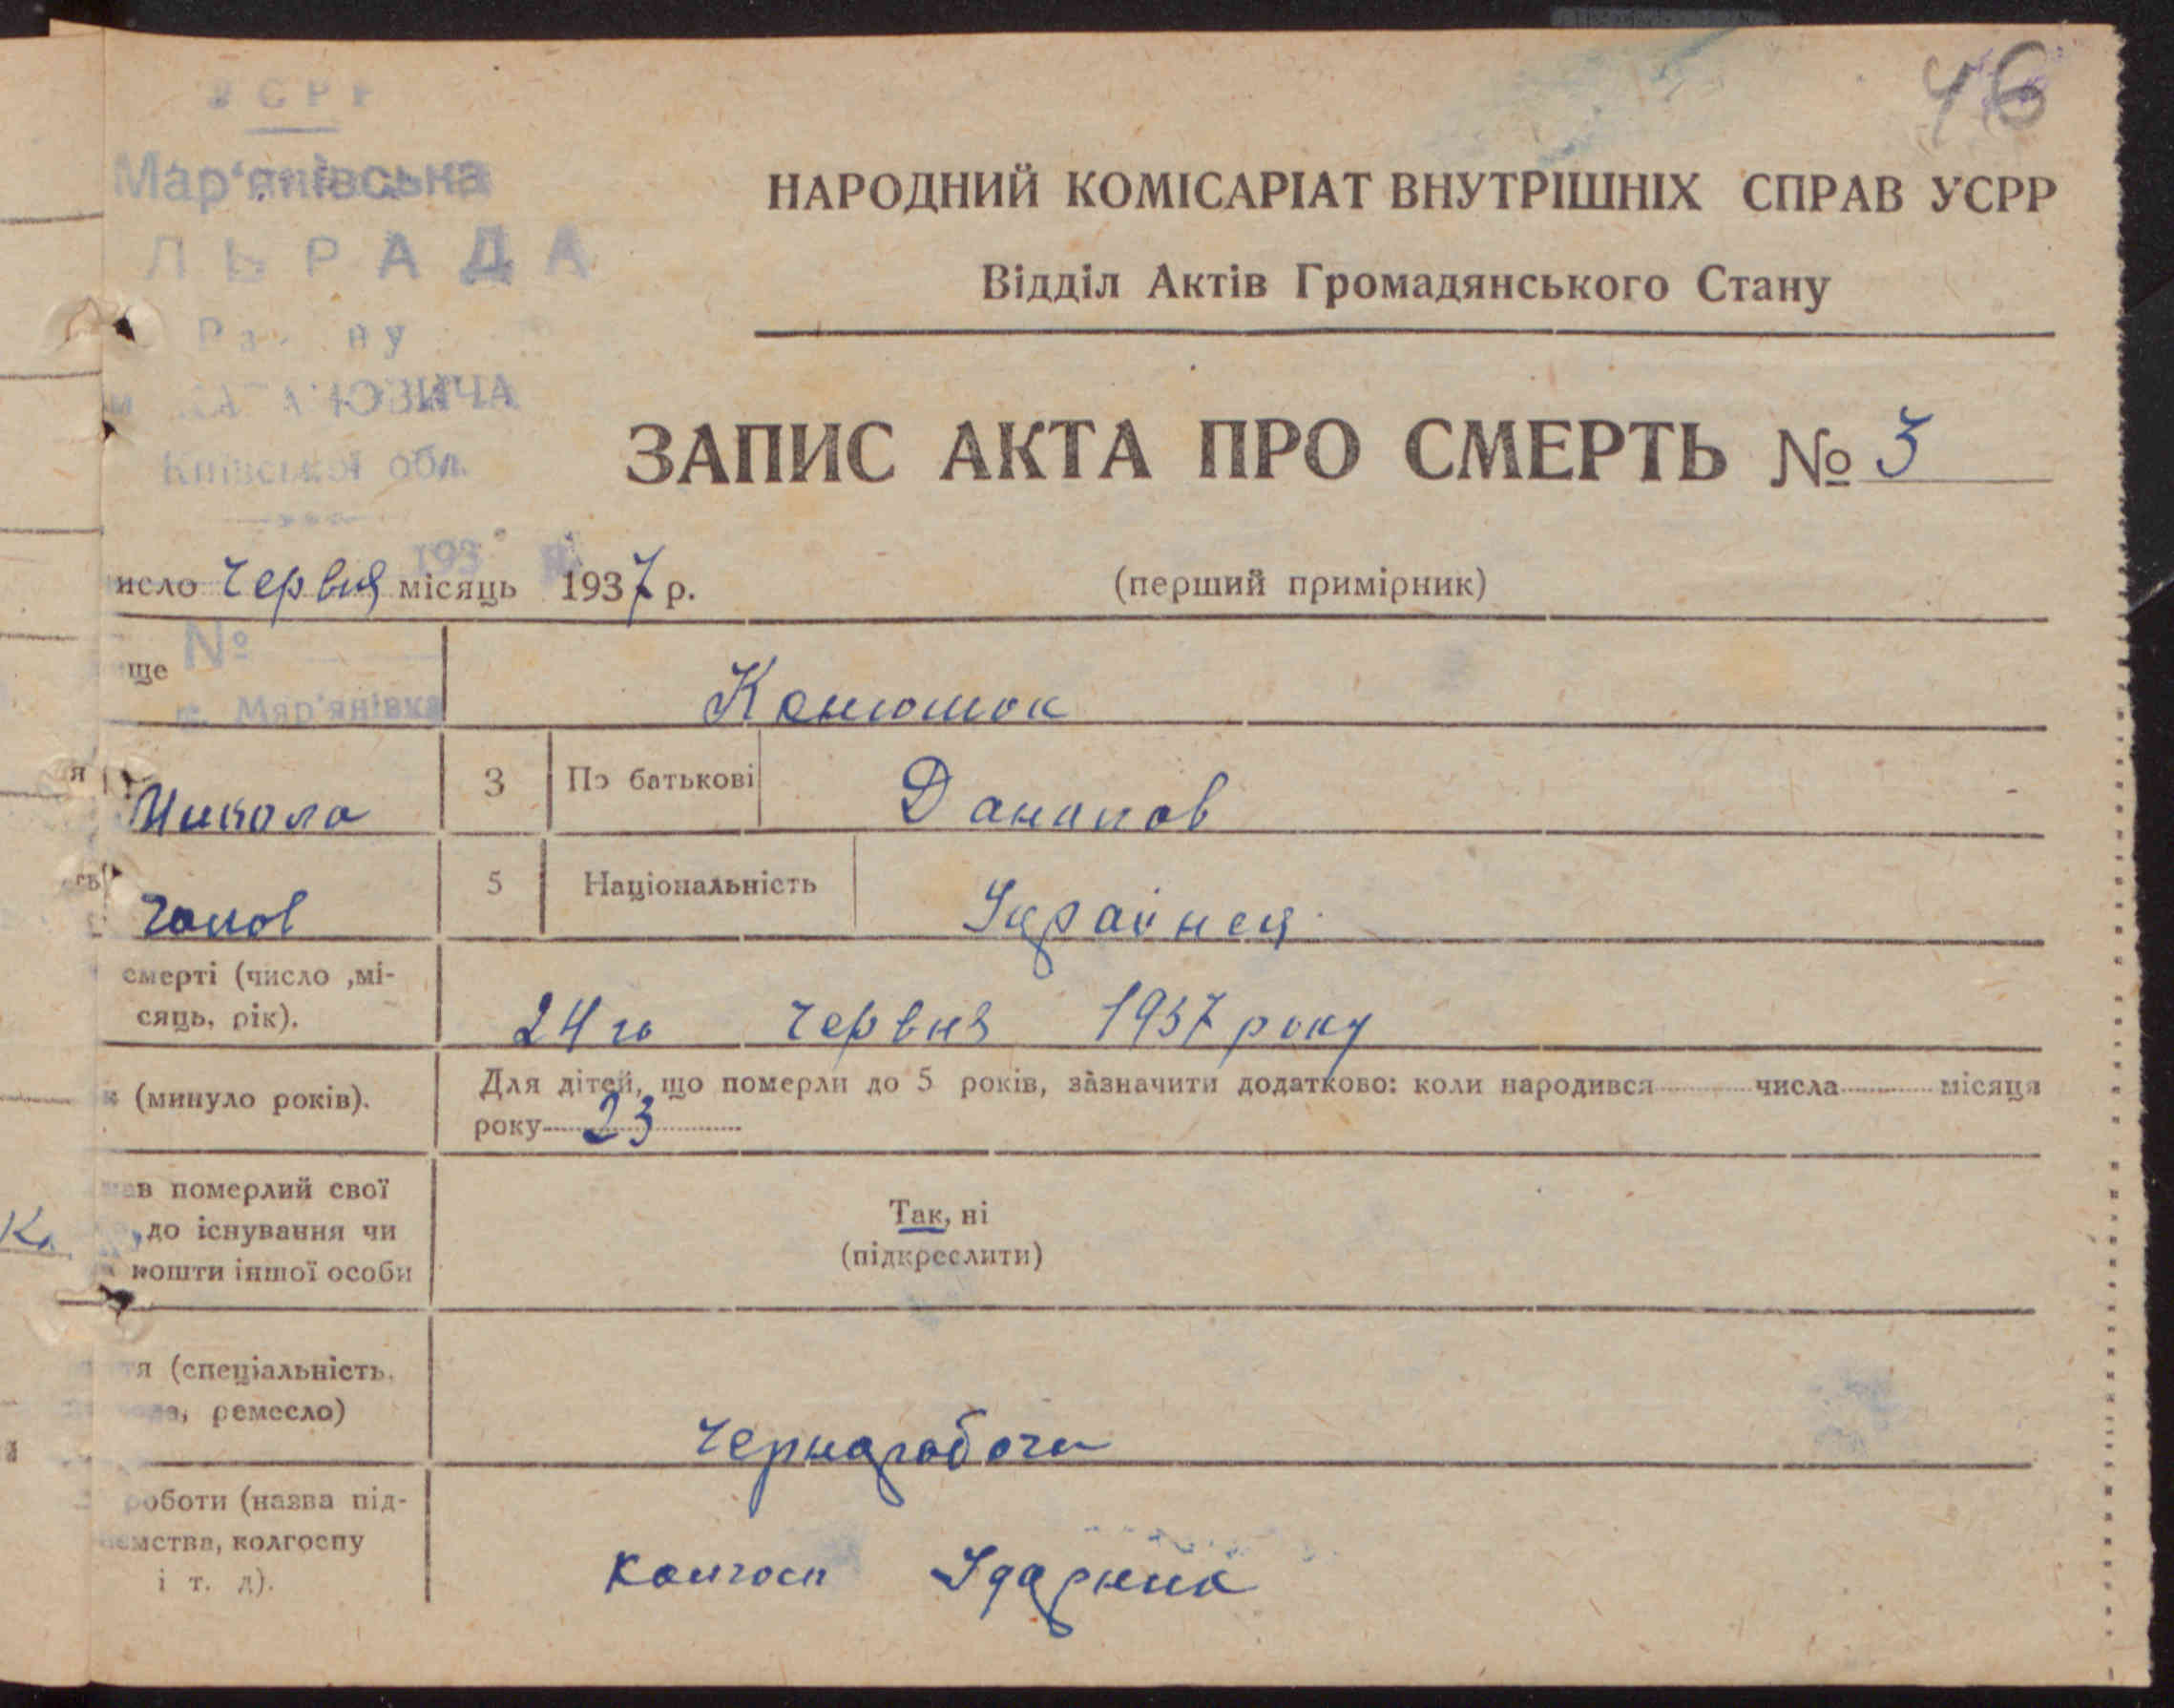 46
УСРР
Мар'янівська
ЛЬРАДА
НАРОДНИЙ КОМІСАРІАТ ВНУТРІШНІХ СПРАВ УСРР
Відділ Актів Громадянського Стану
Київської обл.
ЗАПИС АКТА ПРО СМЕРТЬ № 3
193
исло червня місяць 1937 р.
(перший примірник)
№
ще
с. Мар'янівка
Конюшок
я Микола 3 По батькові Данилов
ть чолов 5 Національність Українец
смерті (число ,мі-
сяць, рік).
24 го червня 1937 року
(минуло років).
Для дітей, що померли до 5 років, зазначити додатково: коли народився числа місяця
року 23
ав померлий свої
до існування чи
кошти іншої особи
Так, ні
(підкреслити)
Ка
тя (спеціальність,
ремесло)
Чернаробочи
роботи (назва під-
ємства, колгоспу
і т. д).
Колгосп Ударник